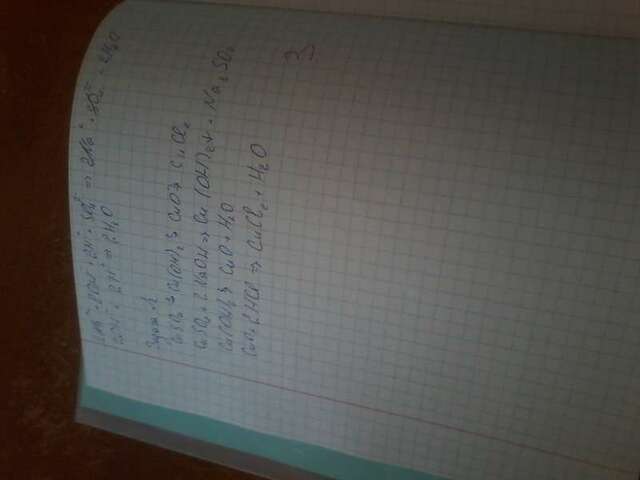 2Na⁺ + 2OH⁻ + 2H⁺ + SO₄²⁻ => 2Na⁺ + SO₄²⁻ + 2H₂O
2OH⁻ + 2H⁺ => 2H₂O
CuSO₄ → Cu(OH)₂ → CuO → CuCl₂
CuSO₄ + 2NaOH => Cu(OH)₂↓ + Na₂SO₄
Cu(OH)₂ → CuO + H₂O
CuO + 2HCl => CuCl₂ + H₂O